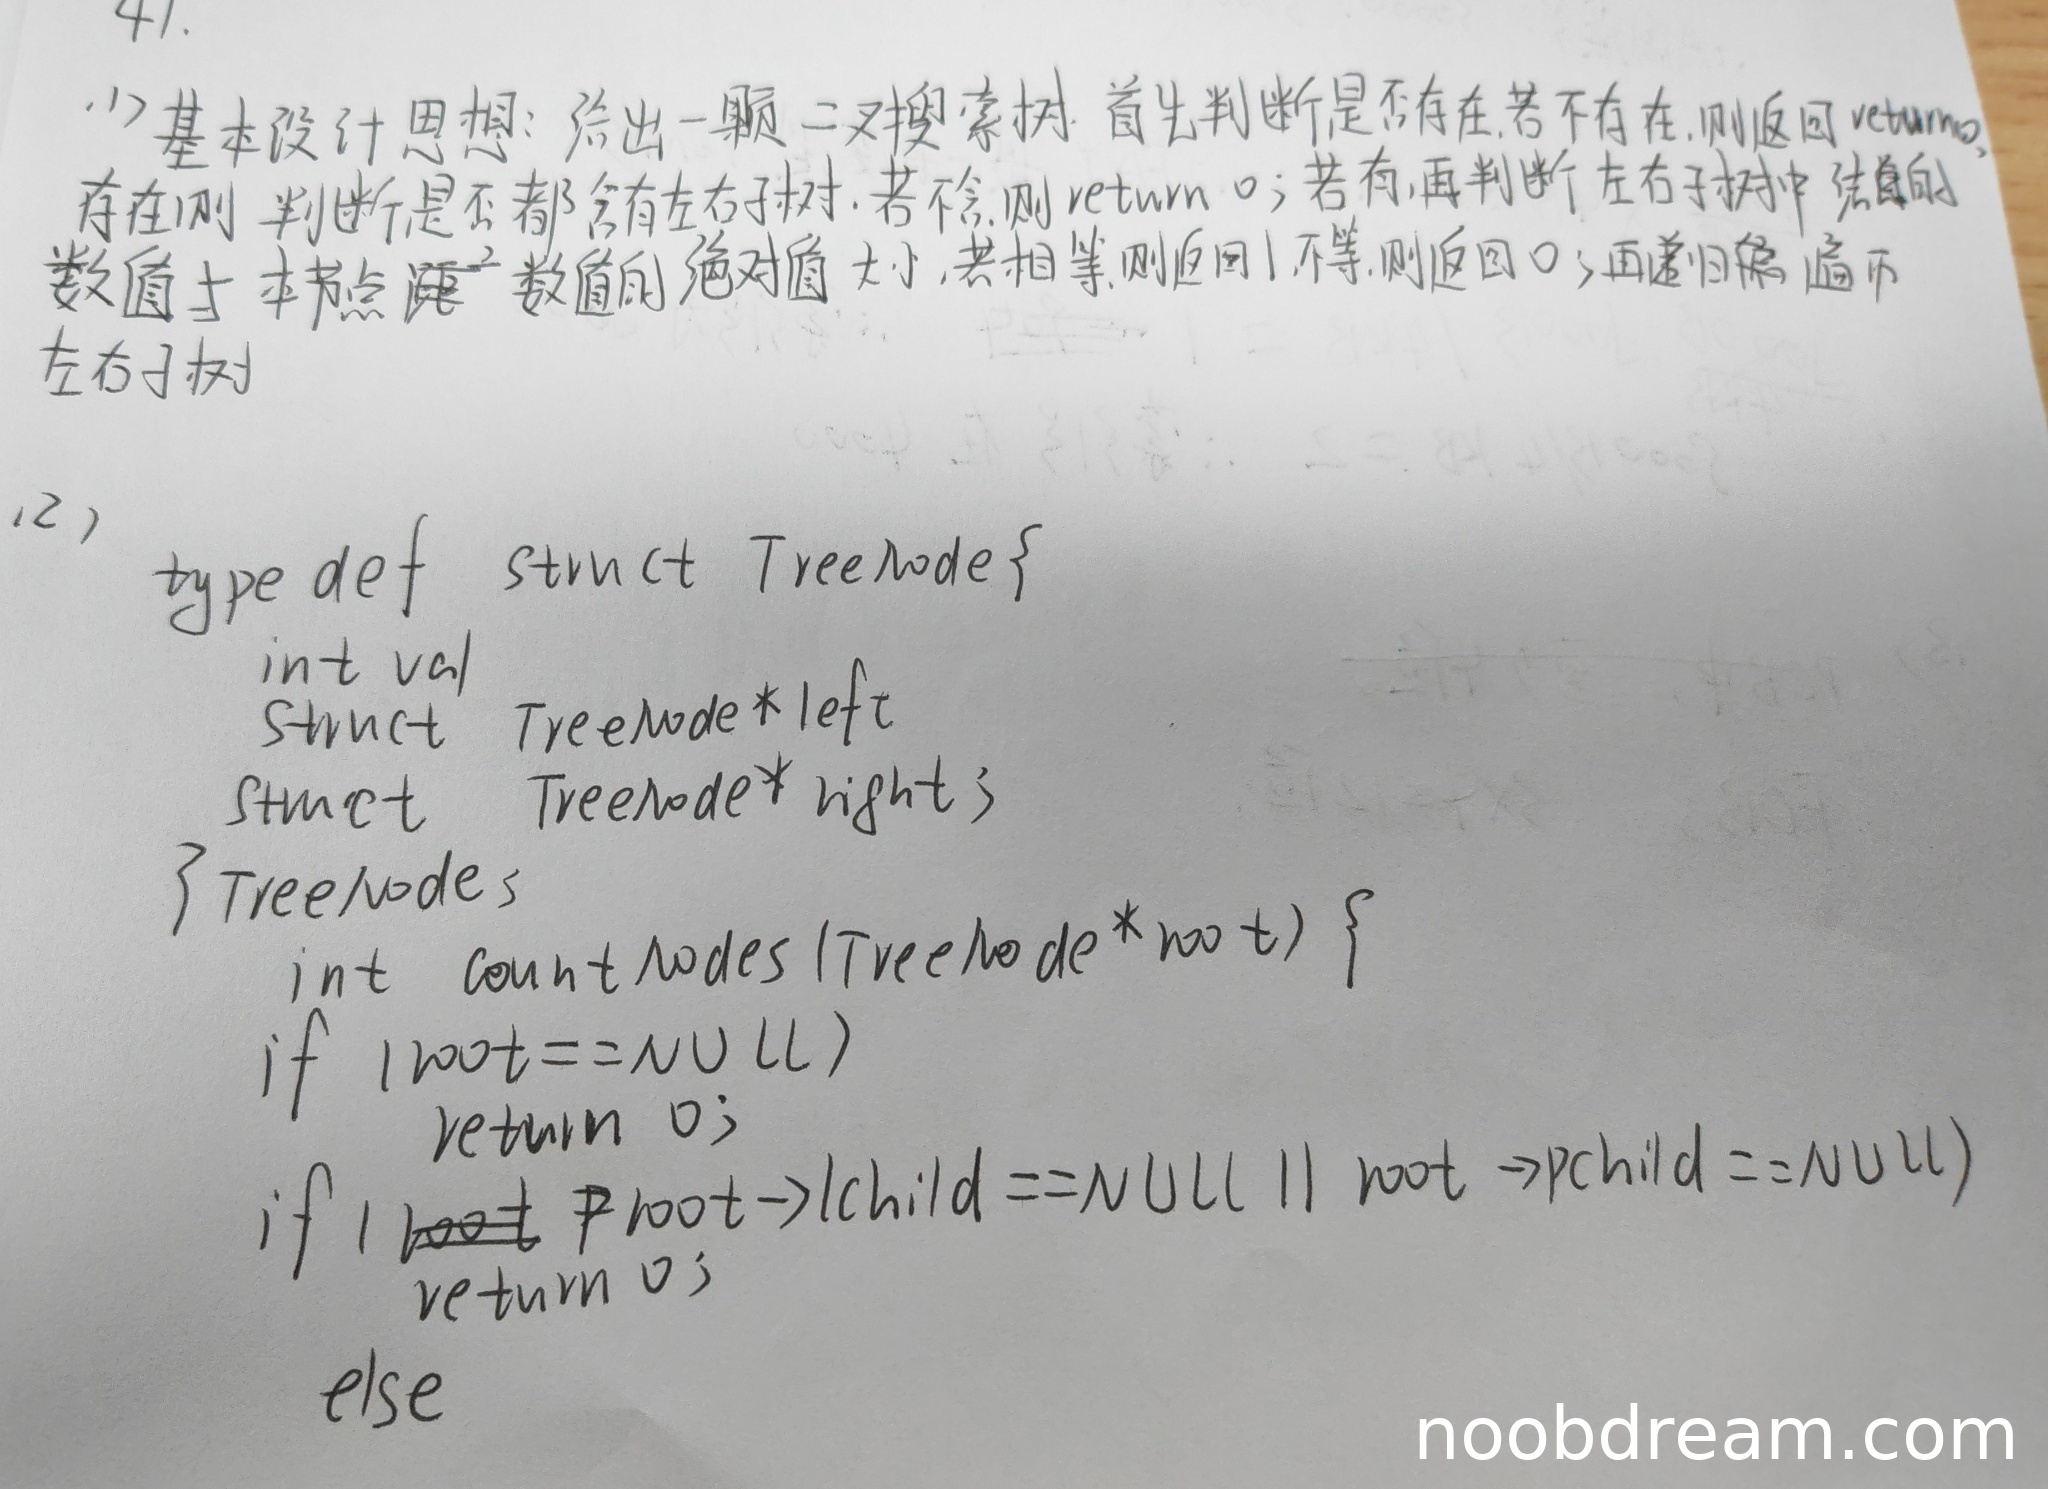 41.
(1) 基本设计思想: 给出一颗二叉搜索树. 首先判断是否存在,若不存在,则返回return 0;
存在则 判断是否都含有左右子树.若不含,则return 0;若有,再判断左右子树中 结点的
数值与本节点 2 数值的绝对值 大小,若相等,则返回1,不等,则返回0;再递归 遍历
左右子树
(2)
typedef struct TreeNode{
int val
struct TreeNode*left
struct TreeNode*right;
}TreeNode;
int countNodes(TreeNode*root) {
if (root==NULL)
return 0;
if ( root->lchild ==NULL || root ->rchild ==NULL)
return 0;
else
noobdream.com